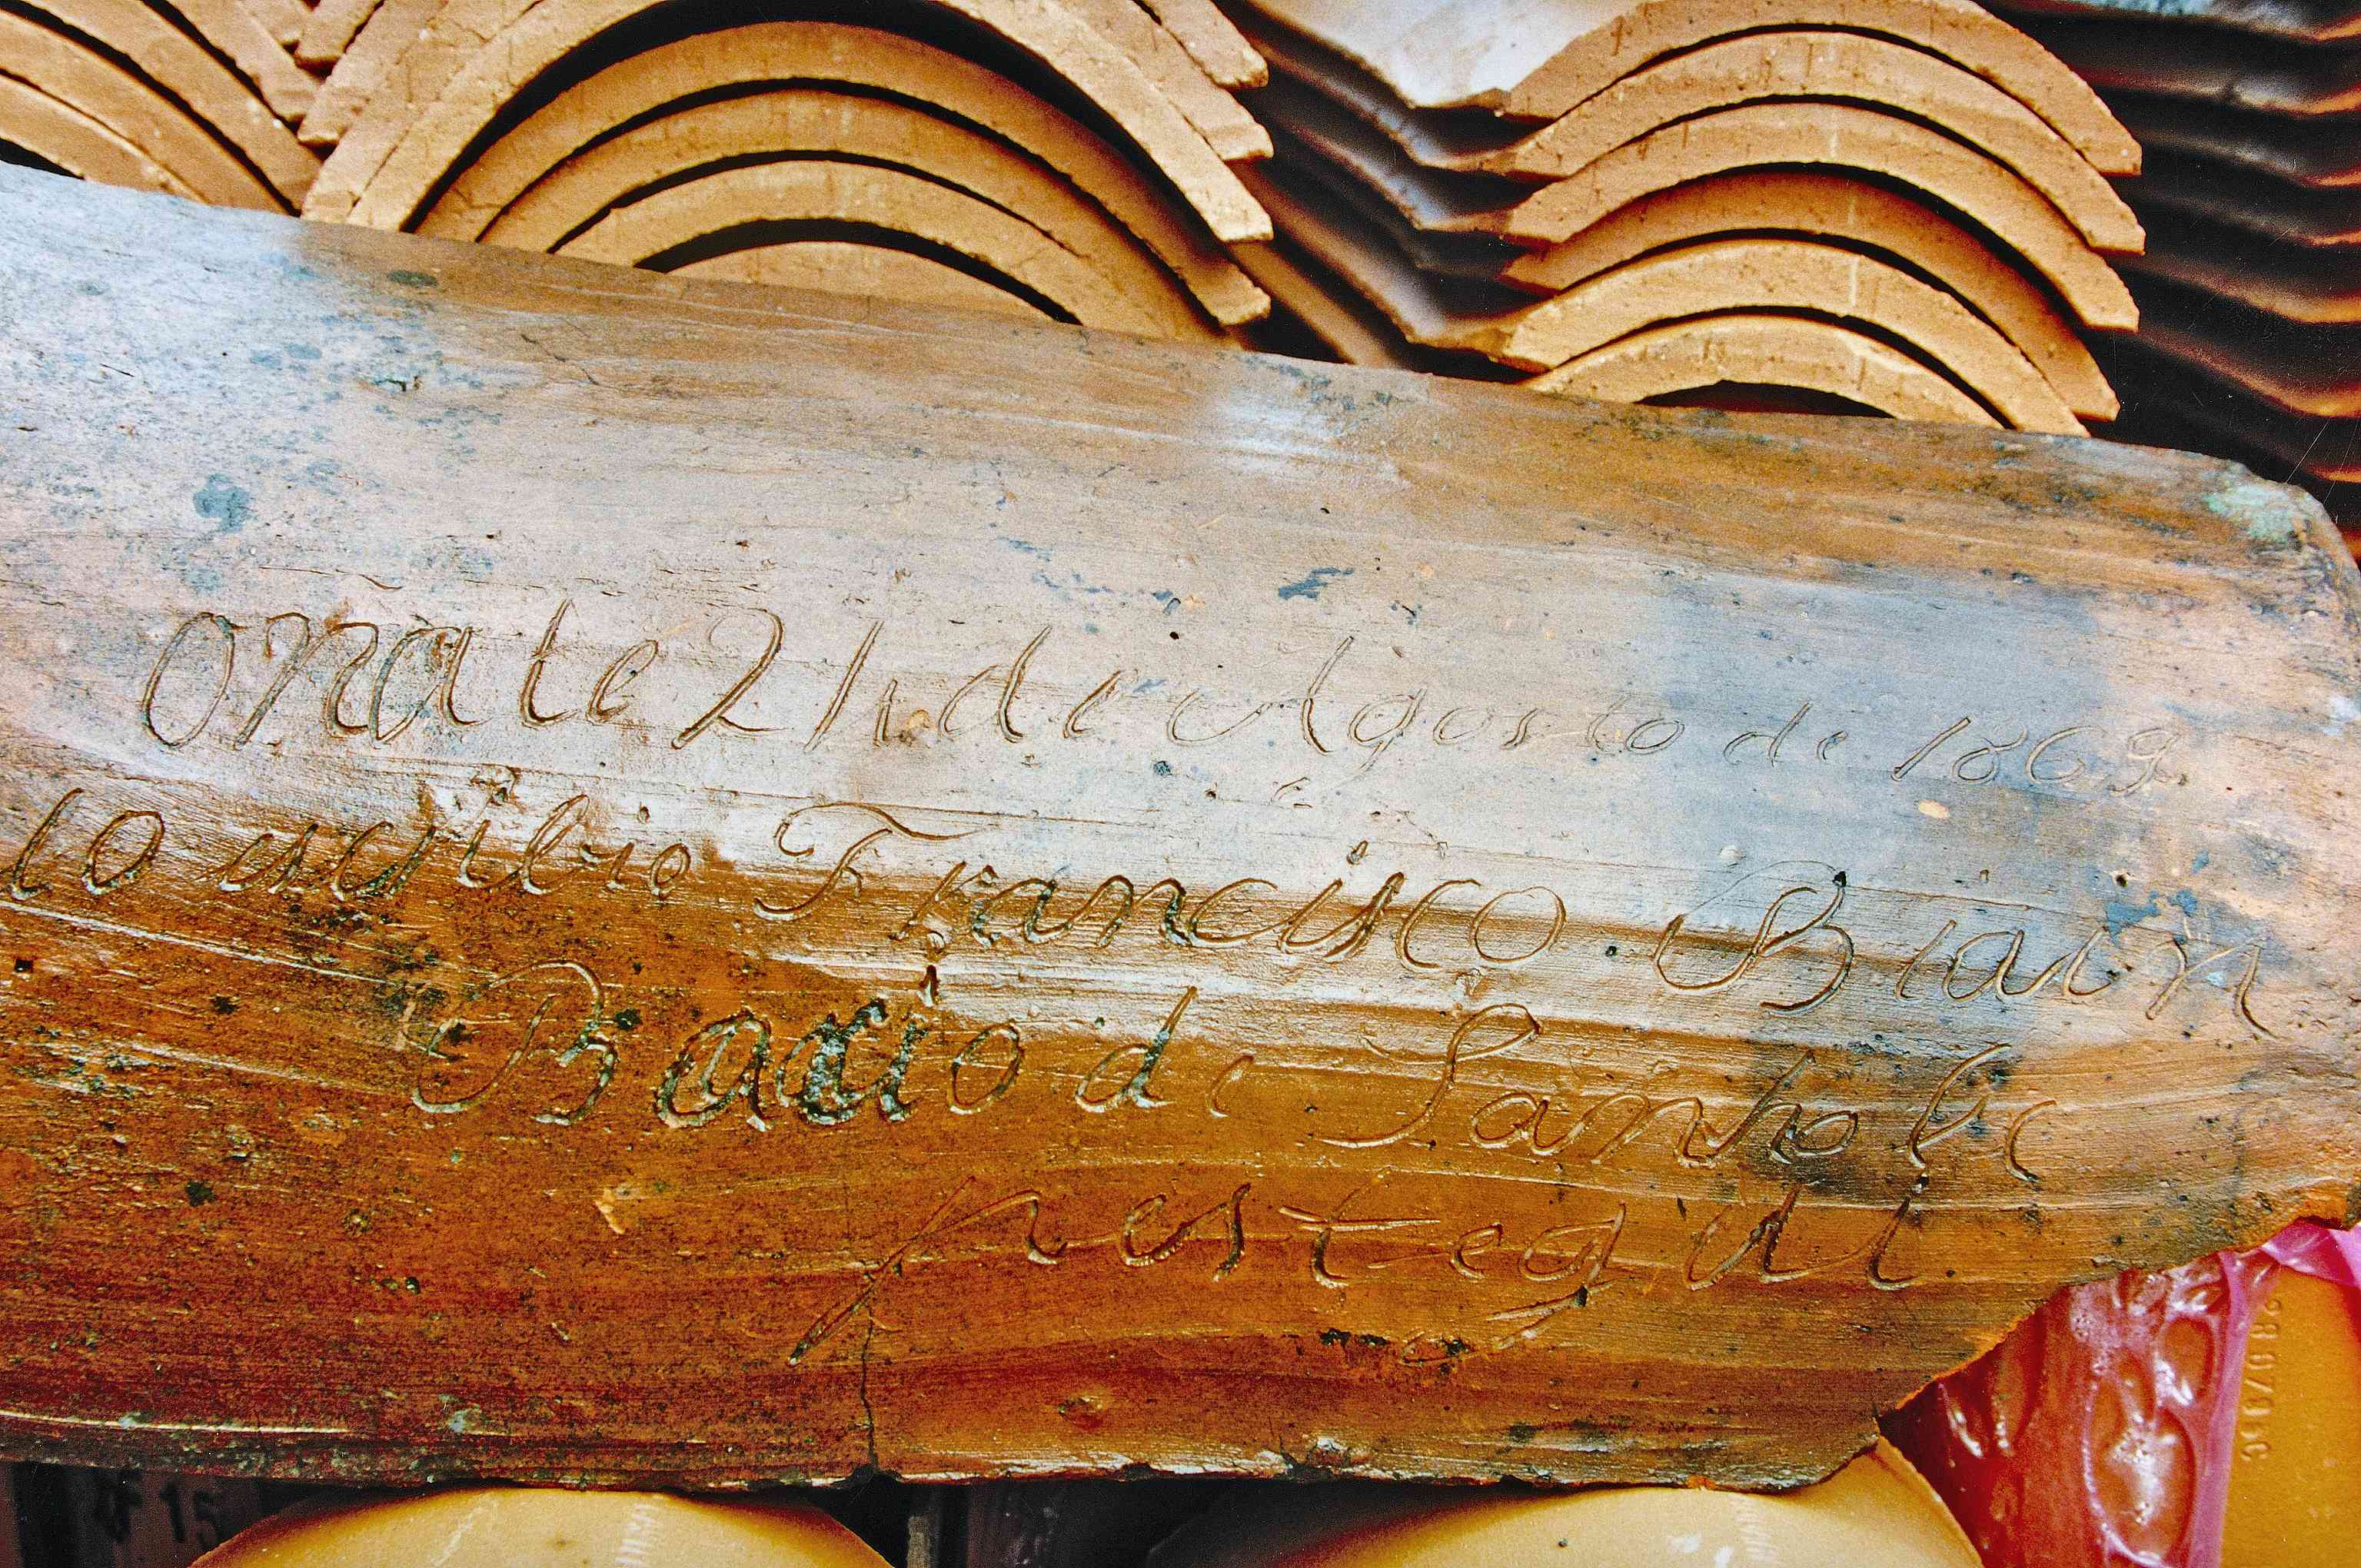 Oñate 21 de Agosto de 1869.
lo escribio Francisco Biain
Barrio de Santholo
pestegui
F 15